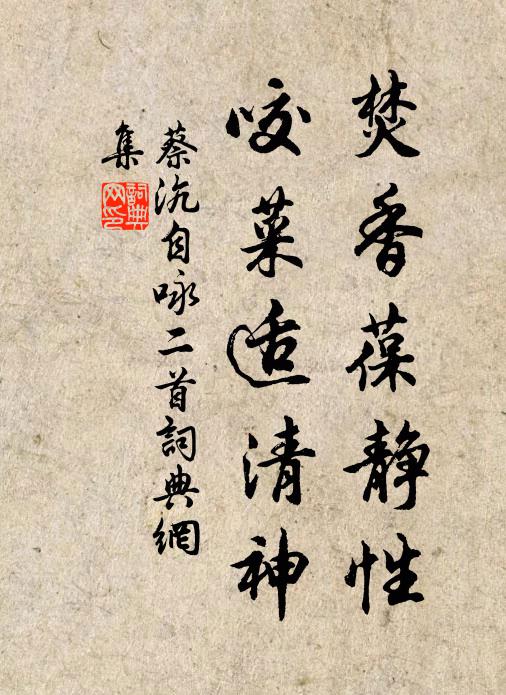 焚香葆静性
咬菜适清神
蔡沈自咏二首詞典網
集
詞典網印